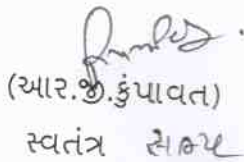 (આર.જી.કુંપાવત)
સ્વતંત્ર સભ્ય